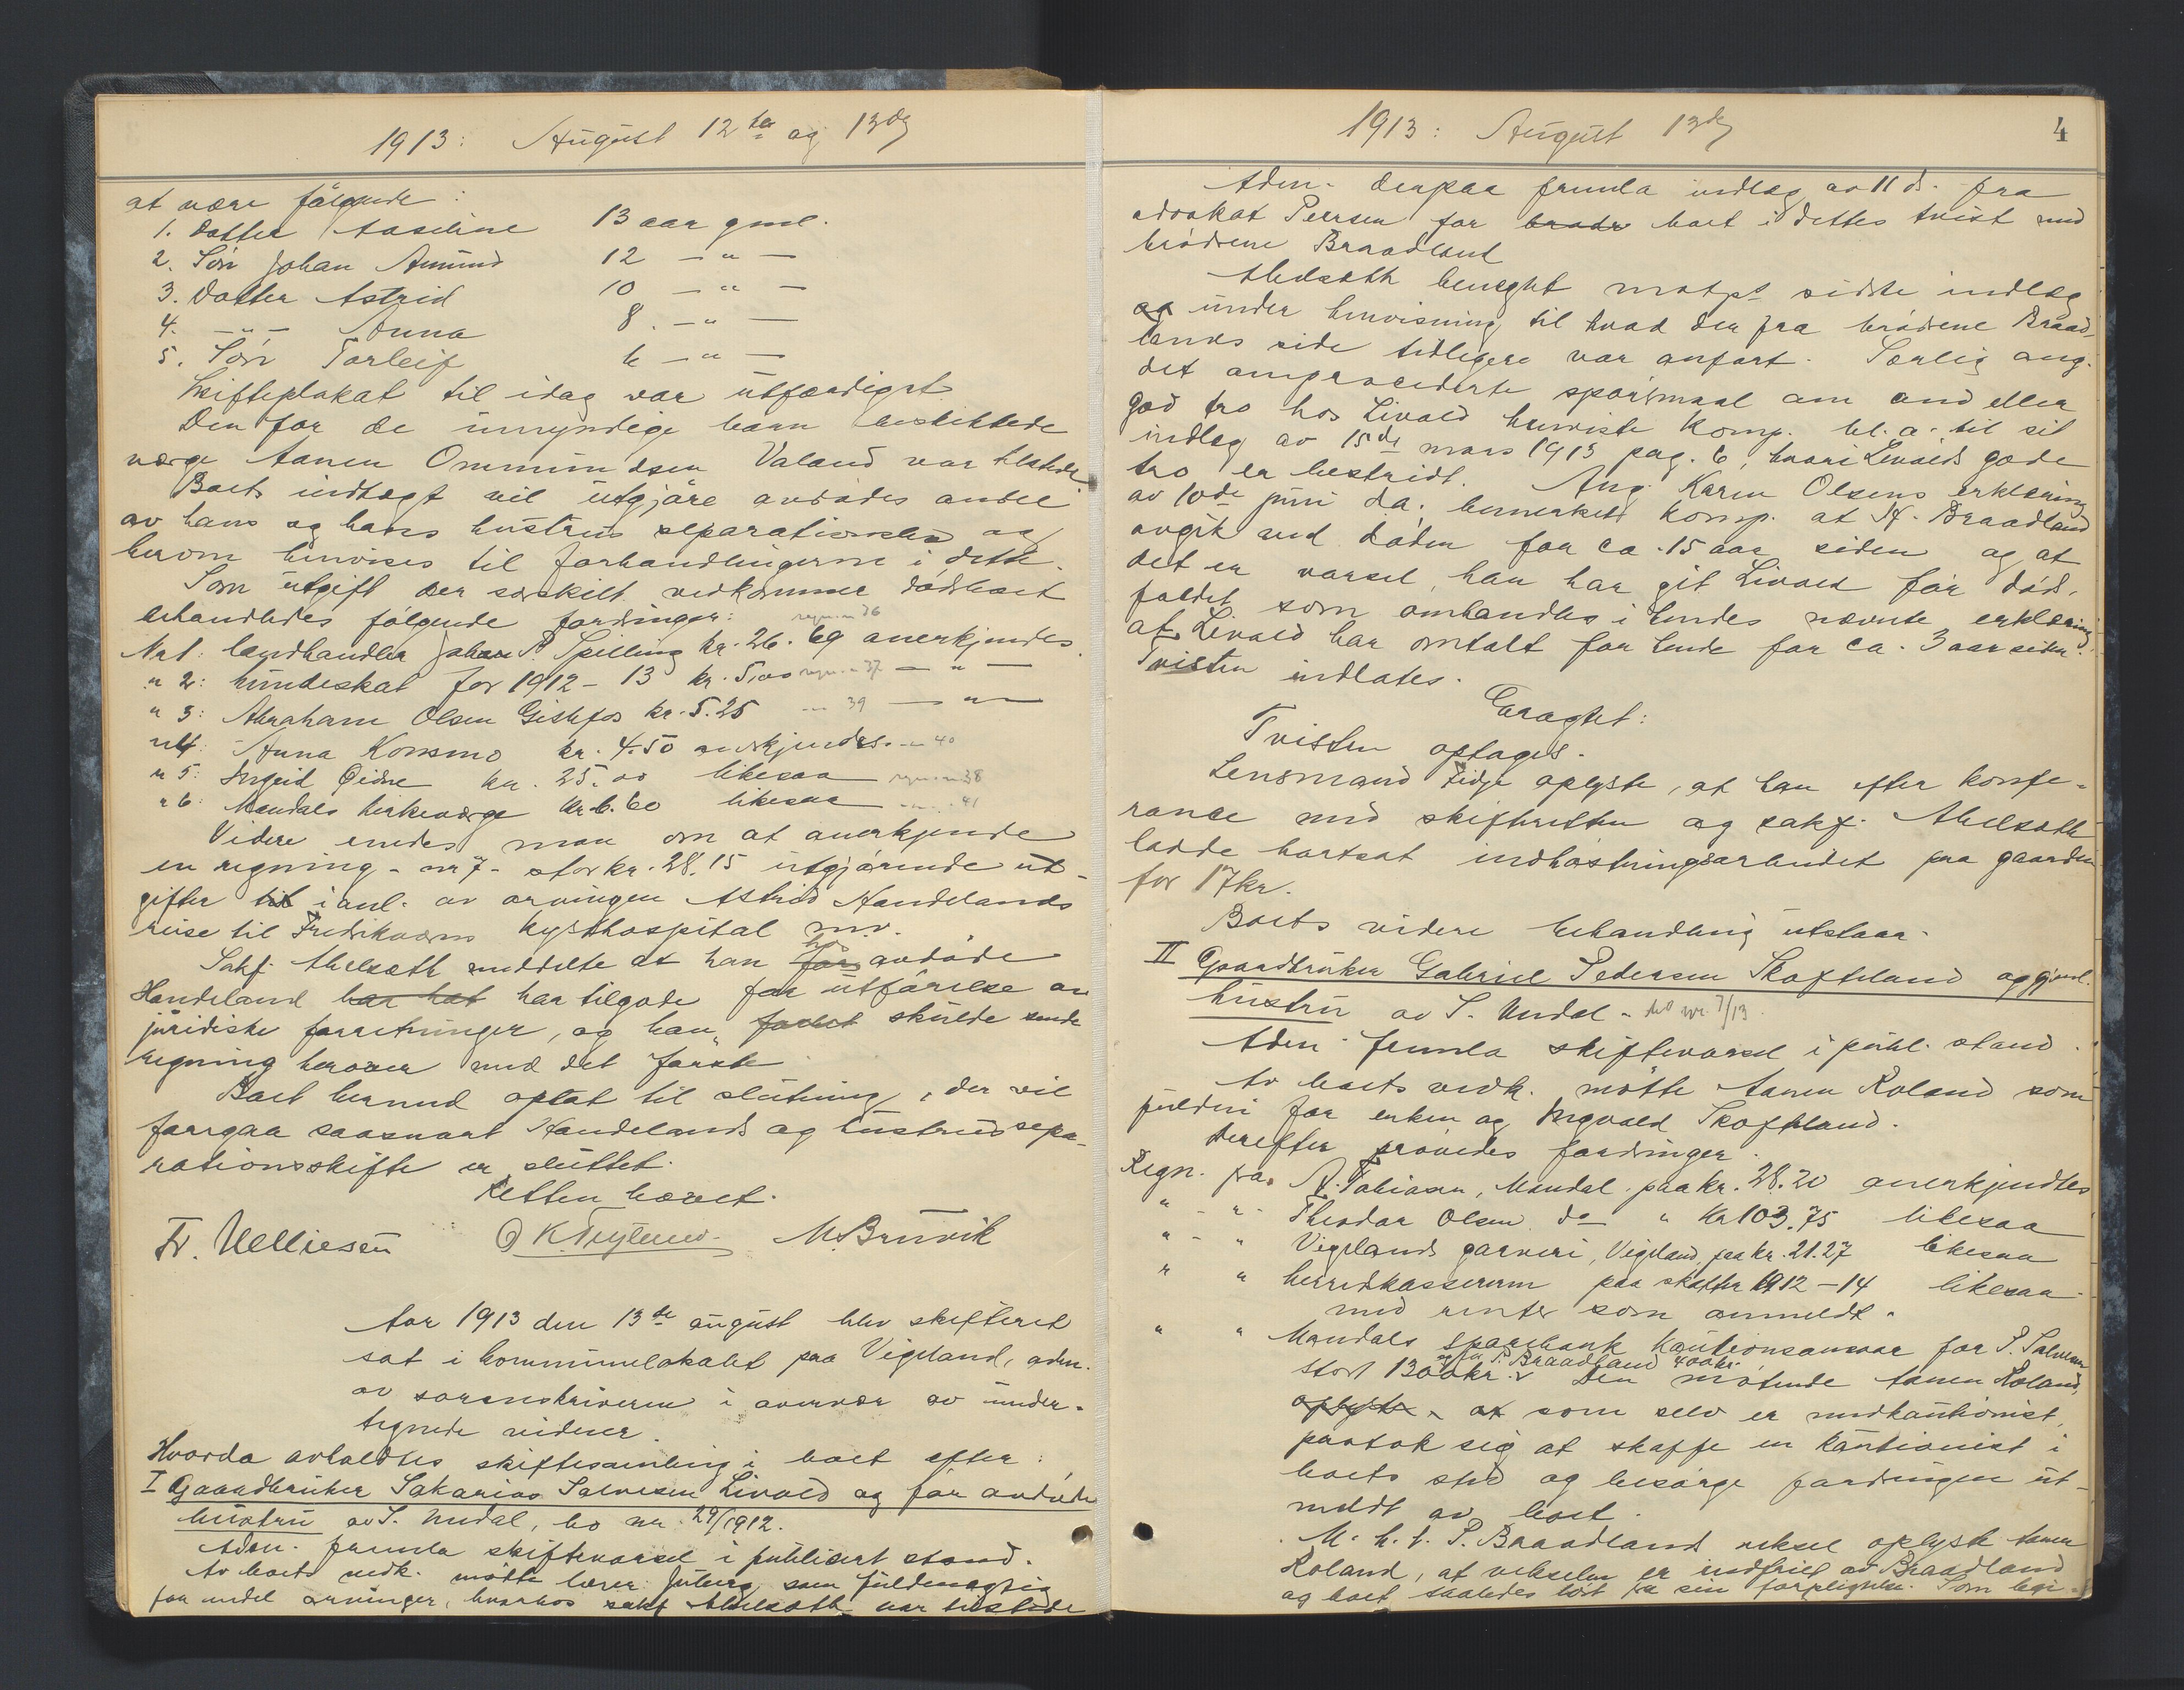 1913: August 12te og 13de
at være følgende:
1. Datter Aaseline 13 aar gml.
2. Søn Johan Amund 12 — " —
3. Datter Astrid 10 — " —
4. — " — Anna 8. — " —
5. Søn Torleif 6 — " —
Skifteplakat til idag var utfærdiget.
Den for de umyndige barn beskikkede
verge Aanen Ommundsen Valand var tilstede
Boets indtægt vil utgjøre avdødes andel
av hans og hans hustrus separationsbo og
herom henvises til forhandlingerne i dette.
Som utgift der særskilt vedkommer dødsboet
behandledes følgende fordringer:
No 1: landhandler Johan P. Spilling kr. 26.69 anerkjendes.
" 2: hundeskat for 1912-13 kr. 5,00 — " —
" 3: Abraham Olsen Gislefos kr. 5.25 39 — " —
" 4: Anna Konsmo kr. 4.50 anerkjendes. 40
" 5: Ingrid Øidne kr. 25.00 likesaa 38
" 6: Mandals kirkeverge kr. 6.60 likesaa 41
Videre enedes man om at anerkjende
en regning - nr 7 - stor kr. 28.15 utgjørende ut-
gifter til i anl. av arvingen Astrid Handelands
reise til Fredriksværns kysthospital mv.
Sakf. Abelsæth meddelte at han for hos avdøde
Handeland har hat har tilgode for utførelse av
juridiske forretninger, og han skulde sende
regning herover med det første
Boet hermed optat til slutning, der vil
foregaa saasnart Handelands og hustrus sepa-
rationsskifte er sluttet.
Retten hævet.
Fr. Velliesen O K Tryland M. Bruvik
Aar 1913 den 13de august blev skifteret
sat i kommunelokalet paa Vigeland, adm.
av sorenskriveren i overvær av under-
tegnede vidner.
Hvorda avholdtes skiftesamling i boet efter:
I Gaardbruker Sakarias Salvesen Livold og før avdøde
hustru av S. Undal, bo nr. 29/1912.
Adm. fremla skiftevarsel i publisert stand.
Av boets vedk. møtte lærer Juberg som fuldmægtig
for endel arvinger, hvorhos sakf Abelsæth var tilstede
1913: August 13de
4
Adm. derpaa fremla indlæg av 11 ds. fra
advokat Peersen for brødr boet i dettes tvist med
brødrene Braadland
Abelsæth benegtet motp.s sidste indlæg
og under henvisning til hvad der fra brødrene Braad-
lands side tidligere var anført. Særlig ang.
det omprocederte spørsmaal om ond eller
god tro hos Livold henviste komp. bl. a. til sit
indlæg av 15de mars 1913 pag. 6, hvori Livolds gode
tro er bestridt. Ang. Karen Olsens erklæring
av 10de juni d.a. bemerkets komp. at N. Braadland
avgik ved døden for ca. 15 aar siden og at
det er varsel, han har git Livold før døds-
faldet som omhandles i hendes nævnte erklæring,
at Livold har omtalt for hende for ca. 3 aar siden.
Tvisten indlates.
Eragtet:
Tvisten optages.
Lensmand Eidje oplyste, at han efter konfe-
rance med skifteretten og sakf. Abelsæth
lodde bortsat indhøstningsarbeidet paa gaarden
for 17 kr.
Boets videre behandling utstaar.
II Gaardbruker Gabriel Pedersen Skofteland og gjenl.
hustru av S. Undal - bo nr. 7/13.
Adm. fremla skiftevarsel i publ. stand.
Av boets vedk. møtte Aanen Roland som
fuldm for enken og Ingvald Skofteland.
Derefter prøvedes fordringer.
Regn. fra N. Tobiasen, Mandal. paa kr. 28.20 anerkjendtes
" - " - Theodor Olsen do " kr 103.75 likesaa
" - " Vigelands garveri, Vigeland, paa kr. 21.27 likesaa
" " herredkassereren paa skatter 1912-14 likesaa
med renter som anmeldt.
" " Mandals sparebank kautionsansvar for S. Salvesen
stort 1300 kr. og for P. Braadland 400 kr. Den møtende Aanen Roland,
oplyste, at som selv er medkautionist,
paatok sig at skaffe en kautionist i
boets sted og besørge fordringen ut-
meldt av boet.
M. h. t. P. Braadlands veksel oplyste Aanen
Roland, at vekselen er indfriet av Braadland
og boet saaledes løst fra sin forpligtelse. Som